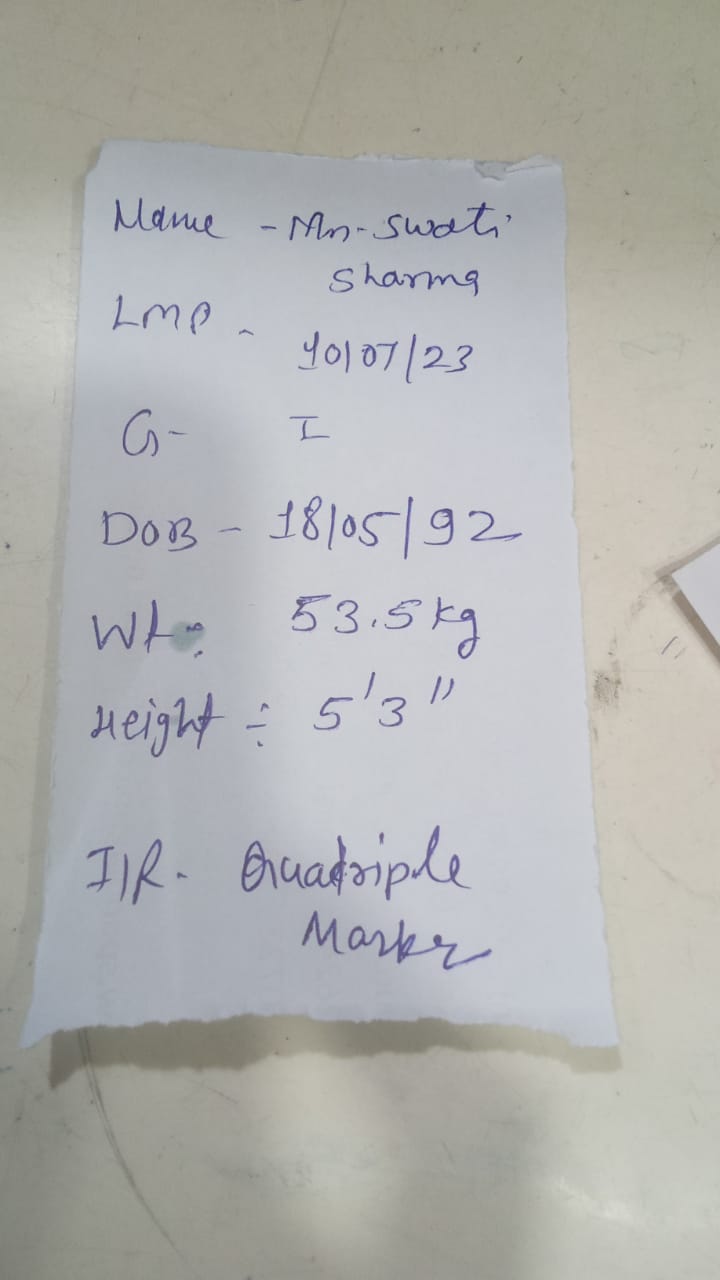 Name - Mrs. Swati
Sharma
LMP - 10/07/23
G - I
DOB - 18/05/92
Wt: 53.5 kg
Height ÷ 5'3"
I/R - Quadriple
Marker